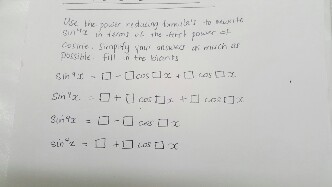 Use the power reducing formula's to rewrite
sin⁴x in terms of the first power of
Cosine. Simplify your answer as much as
possible. Fill in the blanks
Sin⁴x = □ - □ cos □ x + □ cos □ x
Sin⁴x = □ + □ cos □ x + □ cos □ x
Sin⁴x = □ - □ cos □ x
Sin⁴x = □ + □ cos □ x